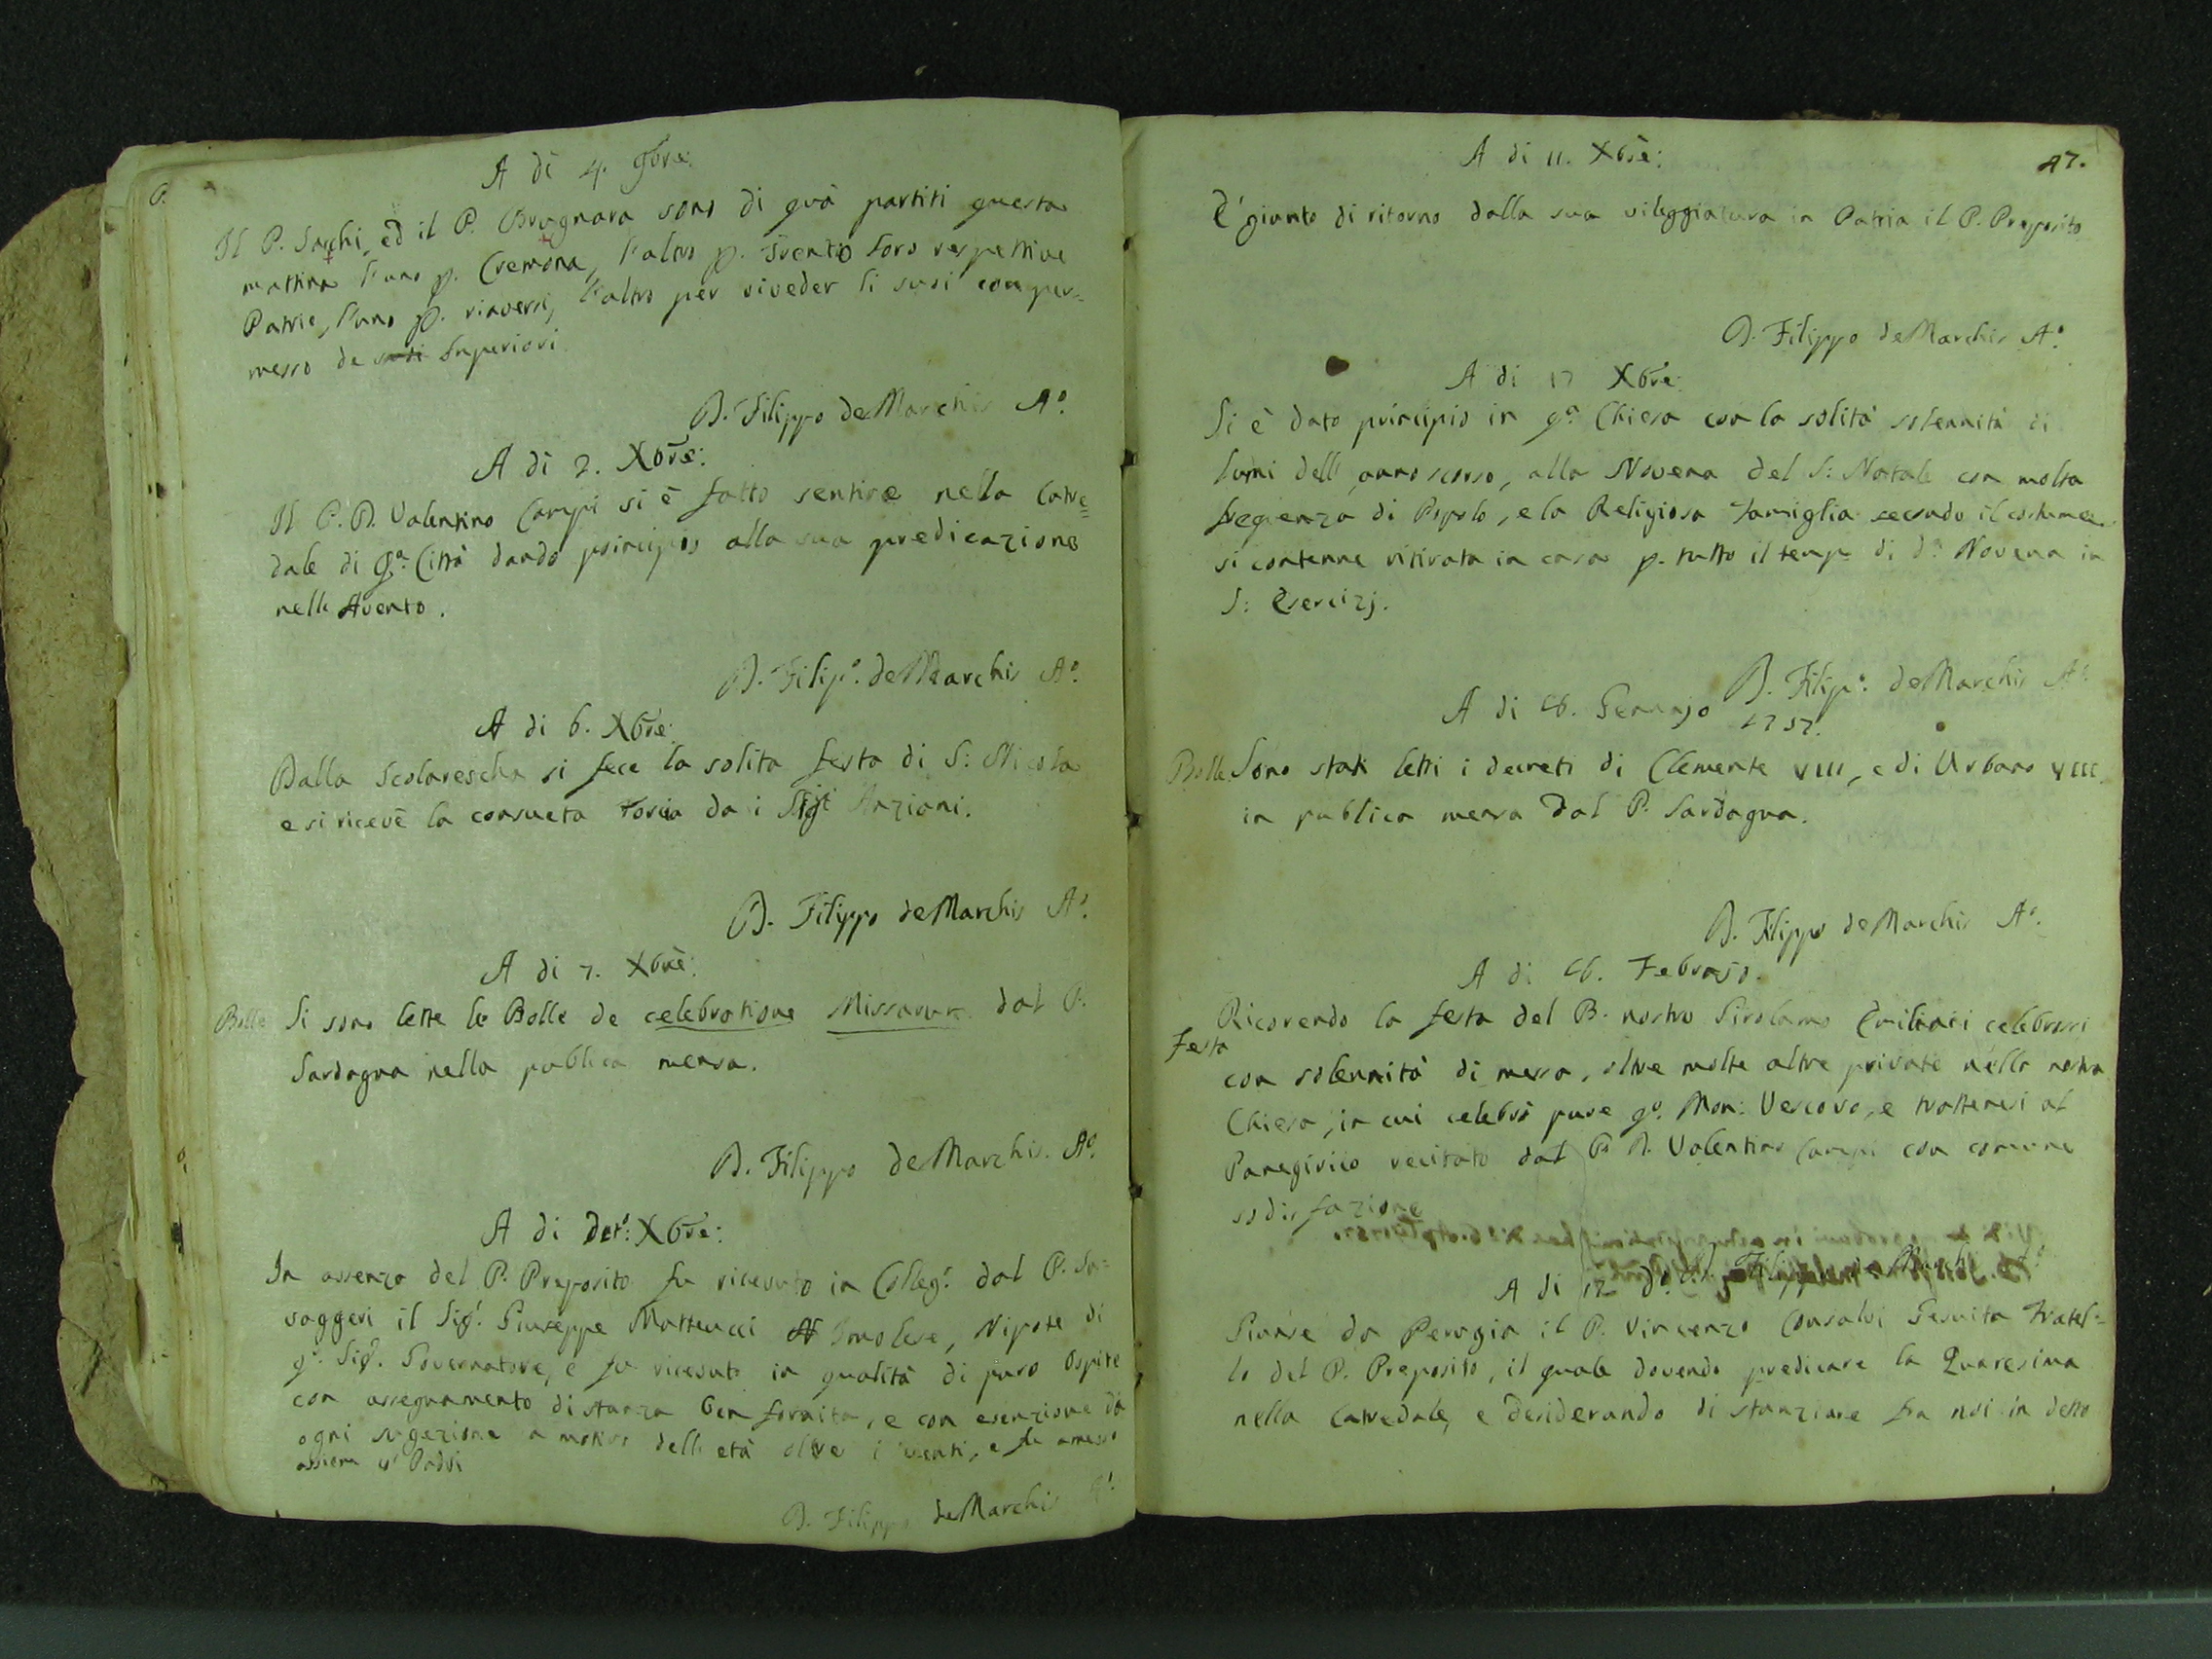 A di 4. 9bre:
Il P. Sacchi, ed il P. Brugnara sono di quà partiti questa
mattina l'uno p. Cremona, l'altro p. Trento loro respettive
Patrie, l'uno p. riaversi, l'altro per riveder li suoi con per=
messo de suoi Superiori.
D. Filippo de Marchis A°.
A di 2. Xbre:
Il P. D. Valentino Campi si è fatto sentire nella Cate=
dale di qa. Città dando principio alla sua predicazione
nell Avento.
D. Filipo. de Marchis A°.
A di 6. Xbre:
Dalla Scolaresca si fece la solita festa di S: Nicola
e si ricevè la consueta torcia da i Sigi Anziani.
D. Filippo de Marchis A°.
A di 7. Xbre:
Bolle Si sono lette le Bolle de celebratione Missarum dal P.
Sardagna nella publica mensa.
D. Filippo de Marchis. A°.
A di deto: Xbre:
In assenza del P. Preposito fu ricevuto in Colleg°. dal P.
il Sigr. Giuseppe Matteucci Imolese, Nipote di
qo. Sigr. Governatore, e fu ricevuto in qualità di puro Ospite
con assegnamento di stanza ben fornita, e con esenzione da
ogni sugezione a motivo dell età oltre i venti, e fu amesso
assiem Padri
D. Filippo de Marchis A°.
47.
A di 11. Xbre:
E' giunto di ritorno dalla sua vileggiatura in Patria il P. Preposito
D. Filippo de Marchis A°.
A di 17 Xbre:
Si è dato principio in qa. Chiesa con la solita solennità di
lumi dell anno scorso, alla Novena del S: Natale con molta
freqenza di Popolo, e la Religiosa Famiglia secondo il costume
si contenne ritirata in casa p. tutto il tempo di da. Novena in
S: Esercizj.
D. Filipo. de Marchis A°.
A di 16. Gennajo 1757.
Bolle Sono stati letti i decreti di Clemente VIII, e di Urbano VIII.
in publica mensa dal P. Sardagna.
D. Filippo de Marchis A°.
A di 16. Febrajo.
Festa Ricorendo la festa del B. nostro Girolamo Emiliani celebrossi
con solennità di messa, oltre molte altre private nella nostra
Chiesa, in cui celebrò pure qo. Mon: Vescovo, e trattenesi al
Panegirico recitato dal P. D. Valentino Campi con comune
sodisfazione
D. Filippo de Marchis A°.
A di 17 do.
Giunse da Perugia il P. Vincenzo Consalvi Gesuita Fratel=
lo del P. Preposito, il quale dovendo predicare la Quaresima
nella Catredale, e desiderando di stanziare fra noi in detto